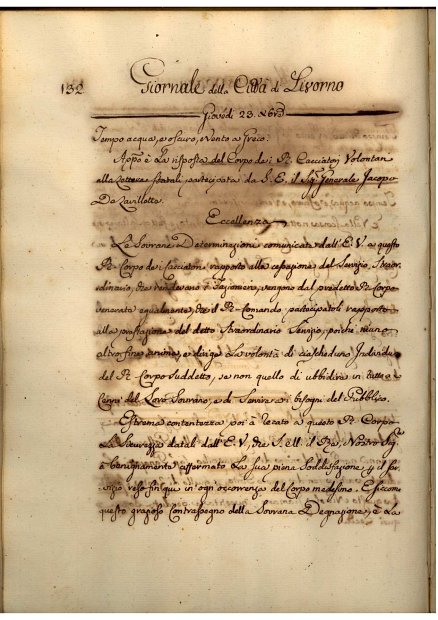 132 Giornale della Città di Livorno
Giovedì 23. 
Tempo acqua, e oscuro, e Vento a Greco.
è La risposta del Corpo de i R. Cacciatori Volontari
alla Lettera partecipata da S. E. il Sig. Generale Jacopo
De Lavilletta.
Eccellenza
Le Sovrane Determinazioni comunicate dall'E. V. a questo
R. Corpo de i Cacciatori rapporto alla cessazione del Servizio Straor
dinario, che rendevano i vengono dal predetto R. Corpo
venerate egualmente, che il R. Comando partecipatoli rapporto
alla prestazione del detto Straordinario Servizio, poichè niun
altro fine anima, e dirige La volontà di ciascheduno Individuo
del R. Corpo Suddetto, se non quello di ubbidire in tutto a
Cenni del Loro Sovrano, e di Servire a i bisogni del Pubblico.
Estrema contentezza poi à recato a questo R. Corpo
La Sicurezza datali dall'E. V, che S. A. R. il Nostro Sig.
à benignamente affermato La Sua piena Soddisfazione il Ser
vizio reso fin qui in ogni occorrenza del Corpo medesimo. E siccome
questo grazioso Contrassegno della Sovrana Degnazione, è La